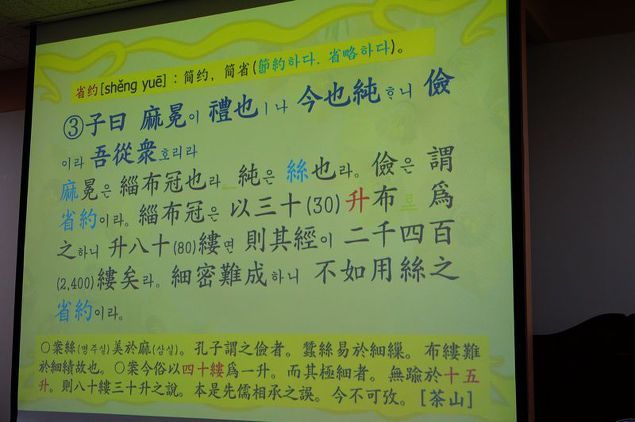 省约[shěng yuē] : 简约, 简省(節約하다. 省略하다)。
③子曰 麻冕이 禮也ㅣ나 今也純ᄒᆞ니 儉
이라 吾從衆호리라
麻冕은 緇布冠也라 純은 絲也라。儉은 謂
省約이라。緇布冠은 以三十(30)升布로 爲
之하니 升八十(80)縷면 則其經이 二千四百
(2,400)縷矣라。細密難成하니 不如用絲之
省約이라。
○案絲(명주실)美於麻(삼실)。孔子謂之儉者。蠶絲易於細繅。布縷難
於細績故也。○案今俗以四十縷爲一升。而其極細者。無踰於十五
升。則八十縷三十升之說。本是先儒相承之誤。今不可攷。[茶山]